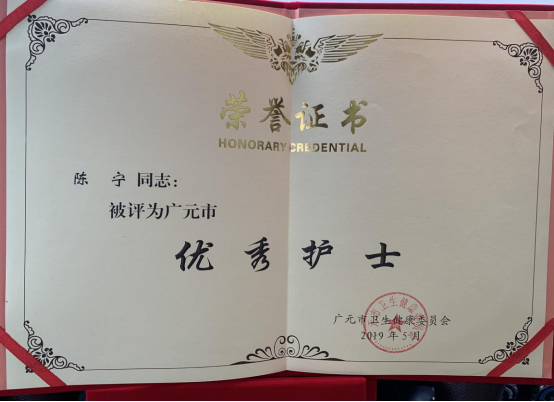 荣誉证书
HONORARY CREDENTIAL
陈 宁 同志：
被评为广元市
优秀护士
广元市卫生健康委员会
2019 年 5 月